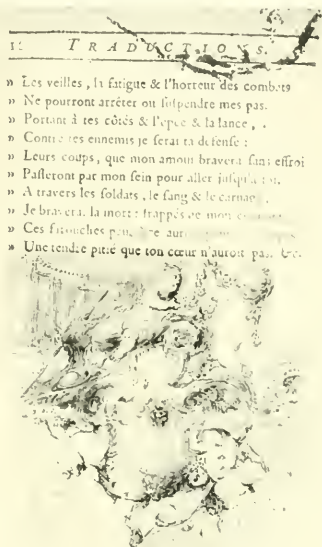 TRADUCTIONS.
» Les veilles, la fatigue & l'horreur des combats
» Ne pourront arrêter ou suspendre mes pas.
» Portant à tes côtés & l'épée & la lance,
» Contre tes ennemis je serai ta défense :
» Leurs coups, que mon amour bravera sans effroi
» Passeront par mon sein pour aller jusqu'à toi.
» A travers les soldats, le sang & le carnage,
» Je braverai la mort : frappés de mon
» Ces farouches
» Une tendre pitié que ton cœur n'auroit pas. &c.